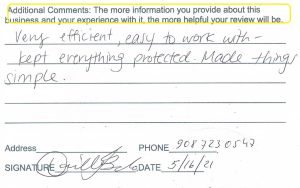 Additional Comments: The more information you provide about this
business and your experience with it, the more helpful your review will be.
Very efficient, easy to work with -
kept everything protected. Made things
simple.
Address
PHONE 9087230547
SIGNATURE DATE 5/16/21